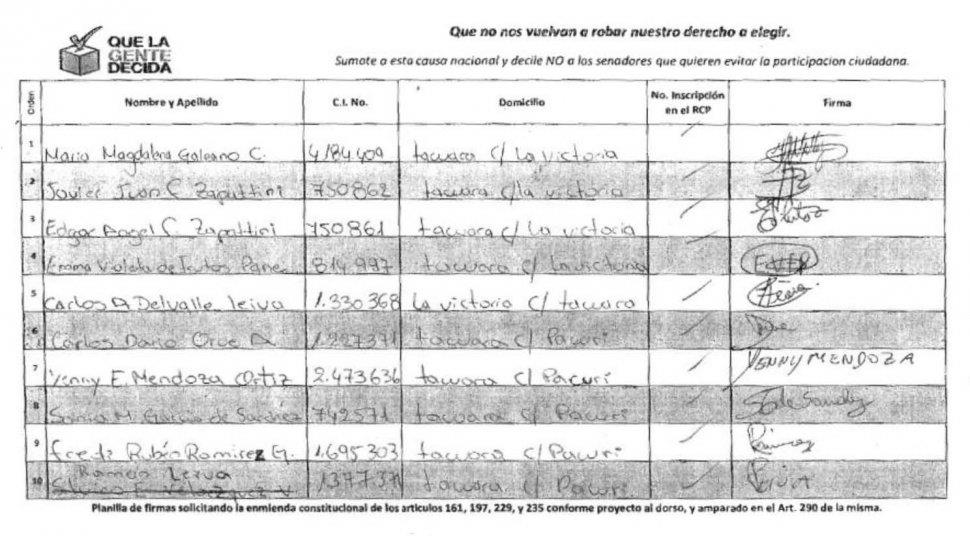 QUE LA
GENTE
DECIDA
Que no nos vuelvan a robar nuestro derecho a elegir.
Sumate a esta causa nacional y decile NO a los senadores que quieren evitar la participacion ciudadana.
Orden Nombre y Apellido C.I. No. Domicilio No. Inscripción en el RCP Firma
1 Maria Magdalena Galeano C. 4184409 tacuara c/ La victoria
2 Javier Juan C Zapattini 750862 tacuara c/la victoria
3 Edgar Angel C. Zapattini 750861 tacuara c/ La victoria
4 Emma Violeta de 814.997 tacuara c/ La victoria
5 Carlos A Delvalle leiva 1.330368 La victoria c/ tacuara
6 Carlos Dario Orue A 1.227371 tacuara c/ Pacuri
7 Yenny E. Mendoza Ortiz 2.473636 tacuara c/ Pacuri YENNY MENDOZA
8 Sonia M. Garcia de Sanchez 742571 tacuara c/ Pacuri
9 Fredi Rubén Ramirez G. 1.695303 tacuara c/ Pacuri
10 Ramon Leiva tacuara c/ Pacuri
Planilla de firmas solicitando la enmienda constitucional de los articulos 161, 197, 229, y 235 conforme proyecto al dorso, y amparado en el Art. 290 de la misma.